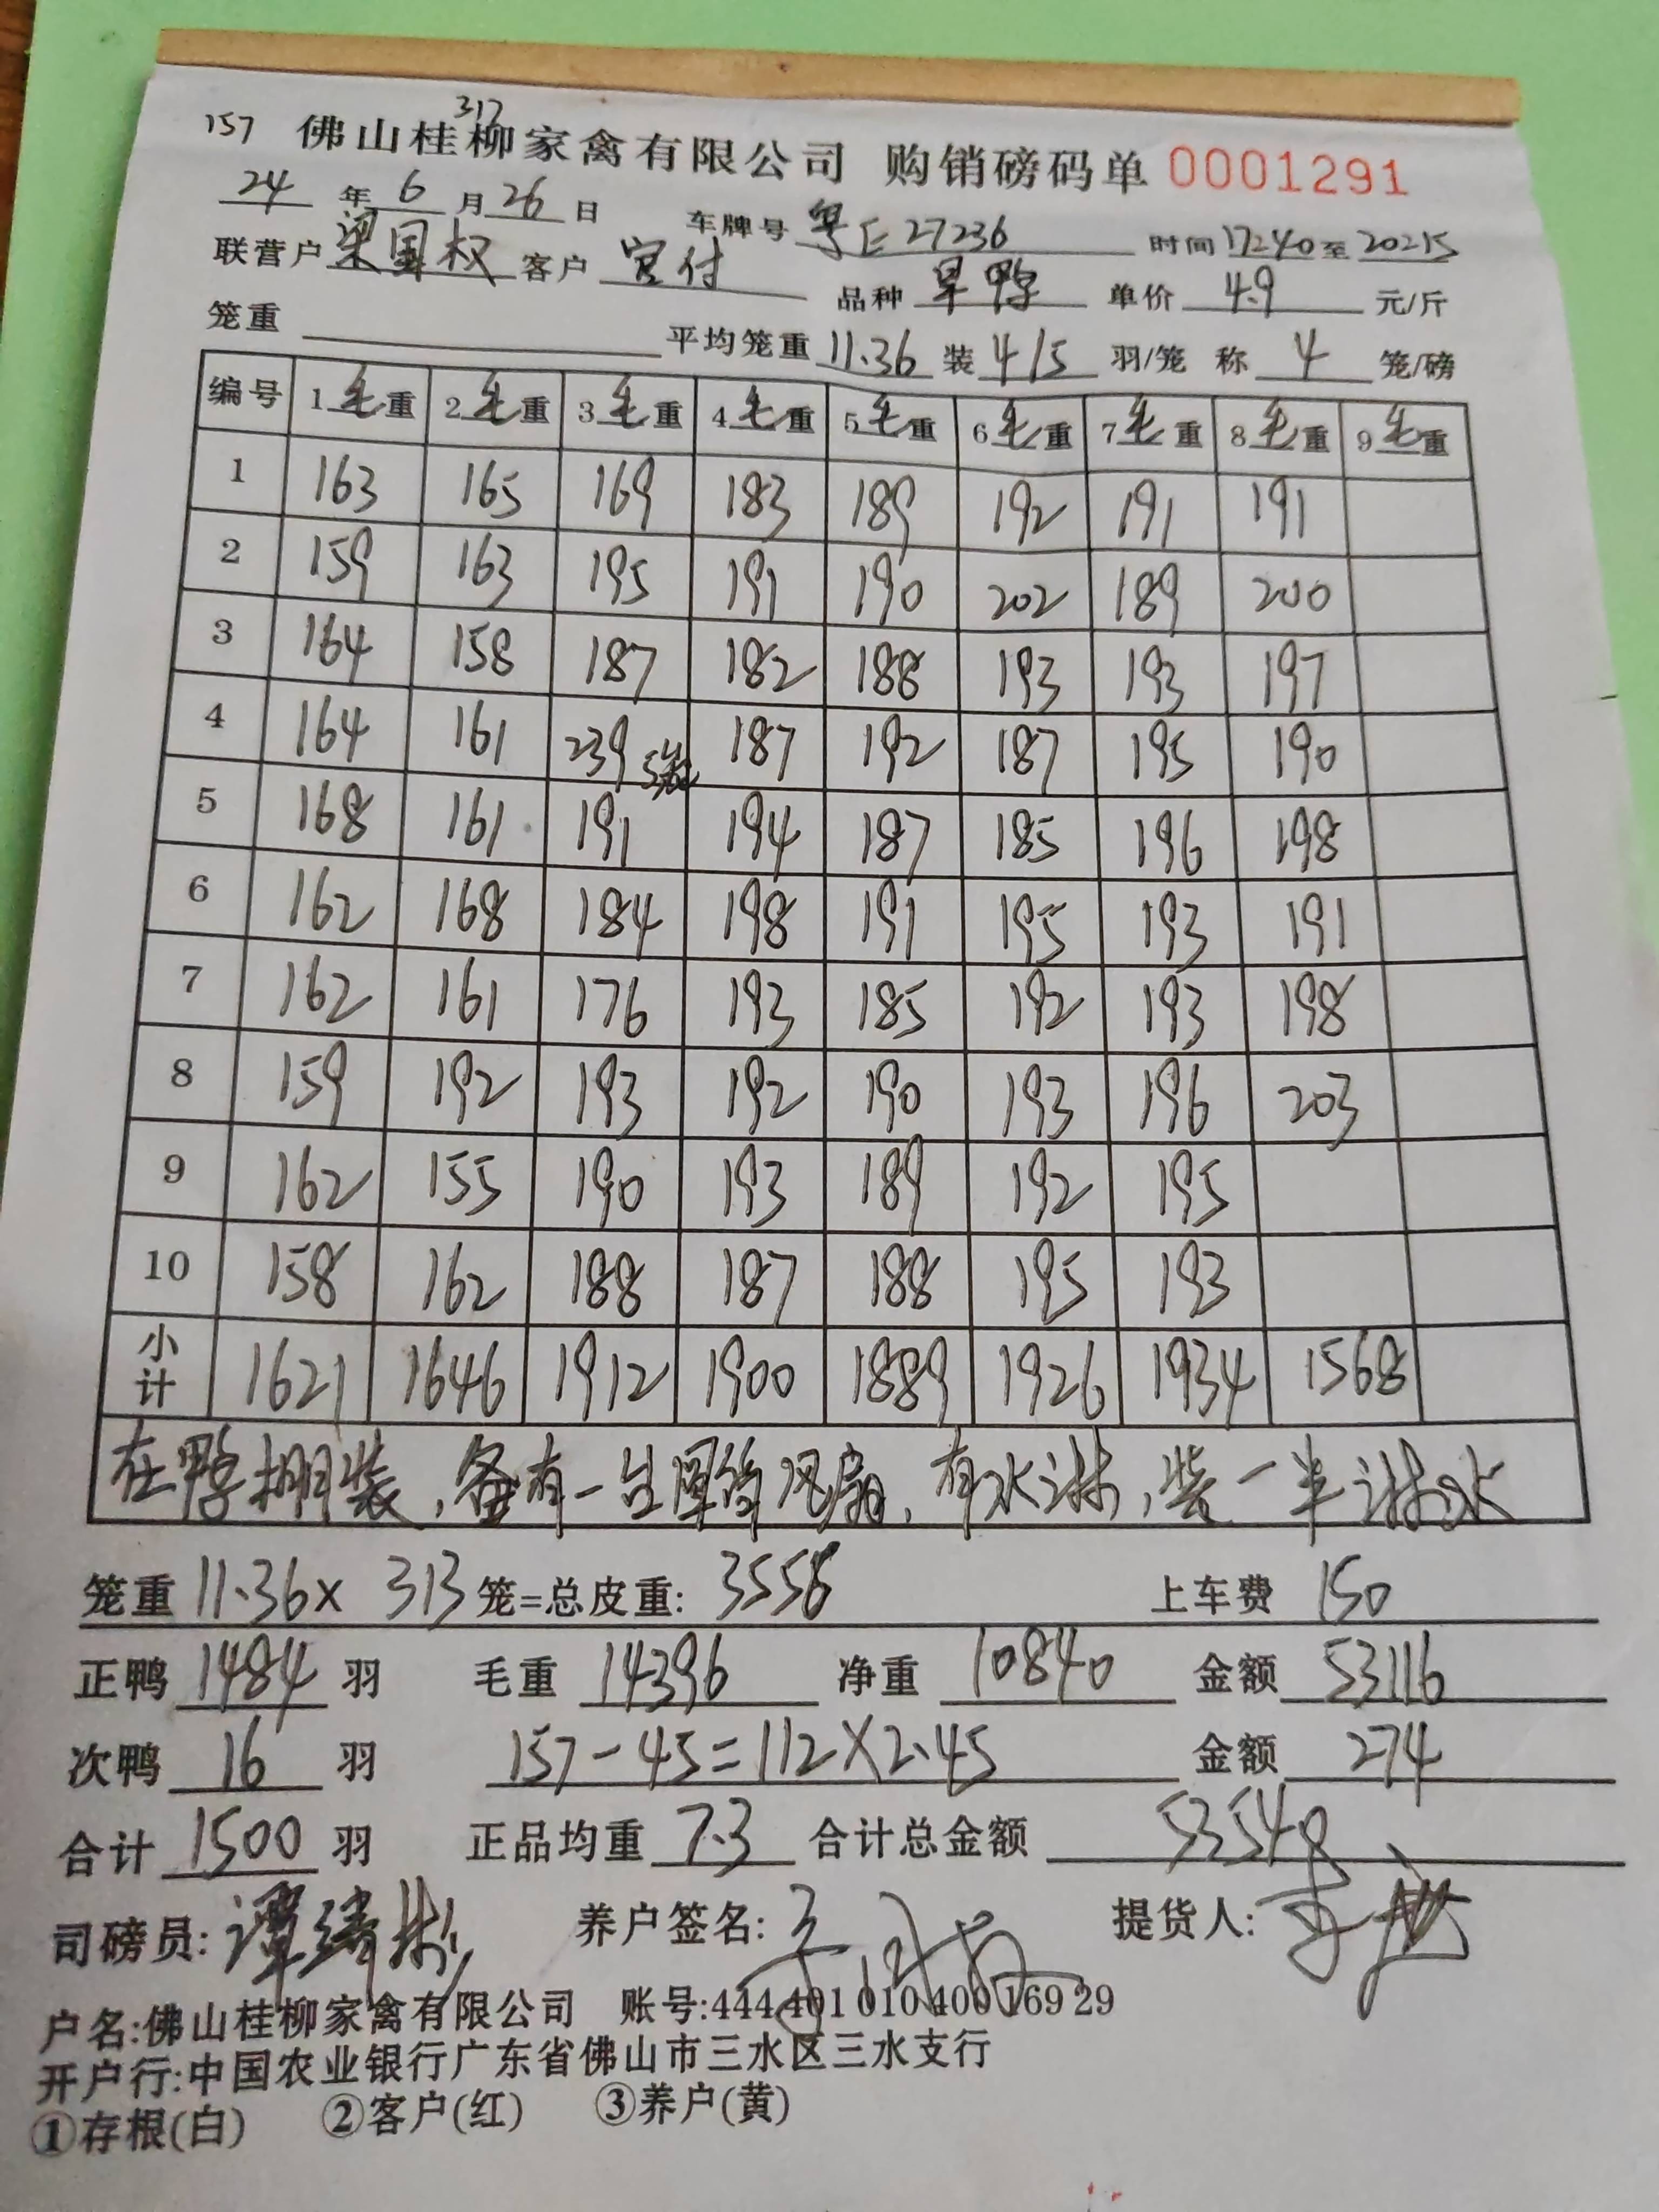 317
157 佛山桂柳家禽有限公司 购销磅码单 0001291
24 年 6 月 26 日 车牌号 粤E27236 时间 17:40 至 20:15
联营户 梁国权 客户 宜付 品种 旱鸭 单价 4.9 元/斤
笼重 平均笼重 11.36 装 4/5 羽/笼 称 4 笼/磅
编号 1毛重 2毛重 3毛重 4毛重 5毛重 6毛重 7毛重 8毛重 9毛重
1 163 165 169 183 189 192 191 191
2 159 163 195 191 190 202 189 200
3 164 158 187 182 188 193 193 197
4 164 161 239 5笼 187 192 187 195 190
5 168 161 191 194 187 185 196 198
6 162 168 184 198 191 195 193 191
7 162 161 176 193 185 192 193 198
8 159 192 193 192 190 193 196 203
9 162 155 190 193 189 192 195
10 158 162 188 187 188 195 193
小计 1621 1646 1912 1900 1889 1926 1934 1568
在鸭棚装,备有一台单筒风扇,有水淋,装一半淋水
笼重 11.36× 313 笼=总皮重: 3556 上车费 150
正鸭 1484 羽 毛重 14396 净重 10840 金额 53116
次鸭 16 羽 157-45=112×2.45 金额 274
合计 1500 羽 正品均重 7.3 合计总金额 53540
司磅员: 养户签名: 提货人:
户名:佛山桂柳家禽有限公司 账号:444 401 010 400 169 29
开户行:中国农业银行广东省佛山市三水区三水支行
①存根(白) ②客户(红) ③养户(黄)